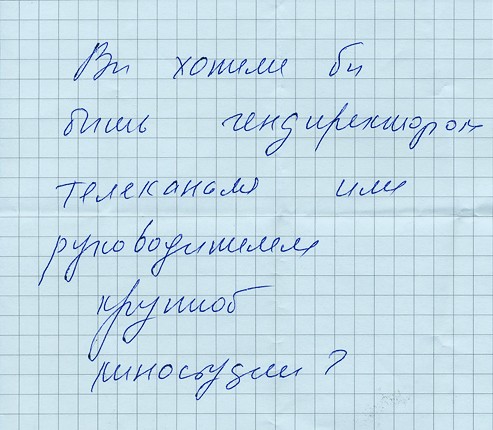 Вы хотели бы
быть гендиректором
телеканала или
руководителем
крупной
киностудии?